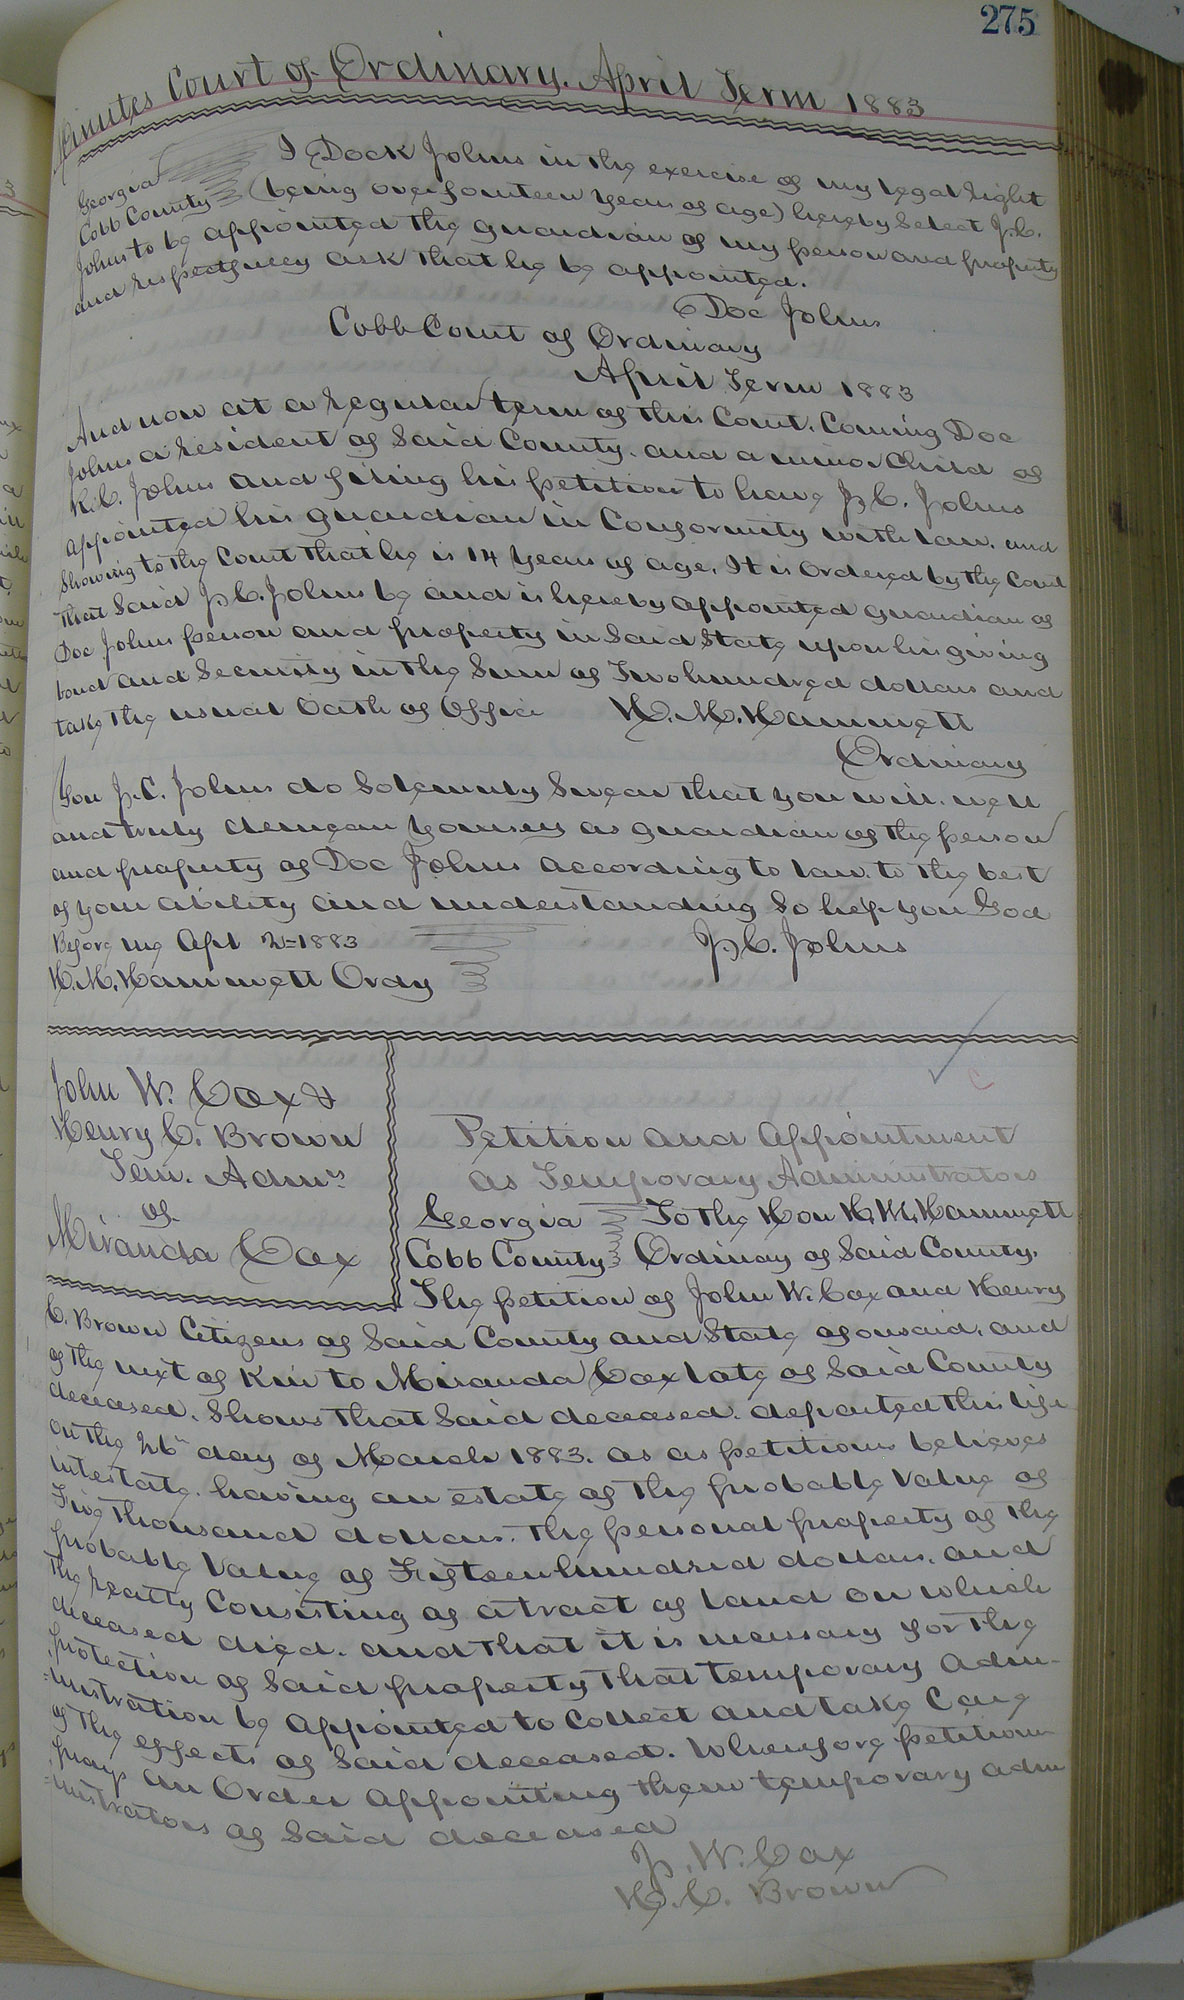 275
Minutes Court of Ordinary. April Term 1883
Georgia I Dock Johns in the exercise of my legal right
Cobb County (being over fourteen years of age) hereby Select J.C.
Johns to be appointed the guardian of my person and property
and respectfully ask that he be appointed.
Doc Johns
Cobb Court of Ordinary
April Term 1883
And now at a regular term of this Court. Coming Doc
Johns a resident of Said County. and a minor Child of
R.C. Johns and filing his petition to have J.C. Johns
appointed his guardian in Conformity with law. and
Showing to the Court that he is 14 years of age. It is Ordered by the Court
that Said J.C. Johns be and is hereby appointed guardian of
Doc Johns person and property in Said State upon his giving
bond and Security in the Sum of Two hundred dollars and
take the usual Oath of Office H. M. Hammett
Ordinary
You J.C. Johns do Solemnly Swear that you will. well
and truly demean yourself as guardian of the person
and property of Doc Johns according to law. to the best
of your ability and understanding So help you God
Before me Apl 2=1883 J.C. Johns
H. M. Hammett Ordy
John W. Cox &
Henry C. Brown
Tem. Admrs
of
Miranda Cox
Petition and Appointment
as Temporary Administrators
Georgia To the Hon H. M. Hammett
Cobb County Ordinary of Said County.
The petition of John W. Cox and Henry
C. Brown Citizens of Said County and State aforesaid, and
of the next of Kin to Miranda Cox late of Said County
deceased. Shows that Said deceased. departed this life
on the 26th day of March 1883. as as petitioners believes
intestate. having an estate of the probable Value of
Five thousand dollars. the personal property of the
probable Value of Fifteen hundred dollars. and
the realty Consisting of a tract of land on which
deceased died. and that it is necessary for the
protection of Said property that temporary admi-
=nistration be appointed to Collect and take Care
of the effects of Said deceased. Wherefore petitioners
prays an Order appointing them temporary admi
=nistrators of Said deceased
J. W. Cox
H. C. Brown